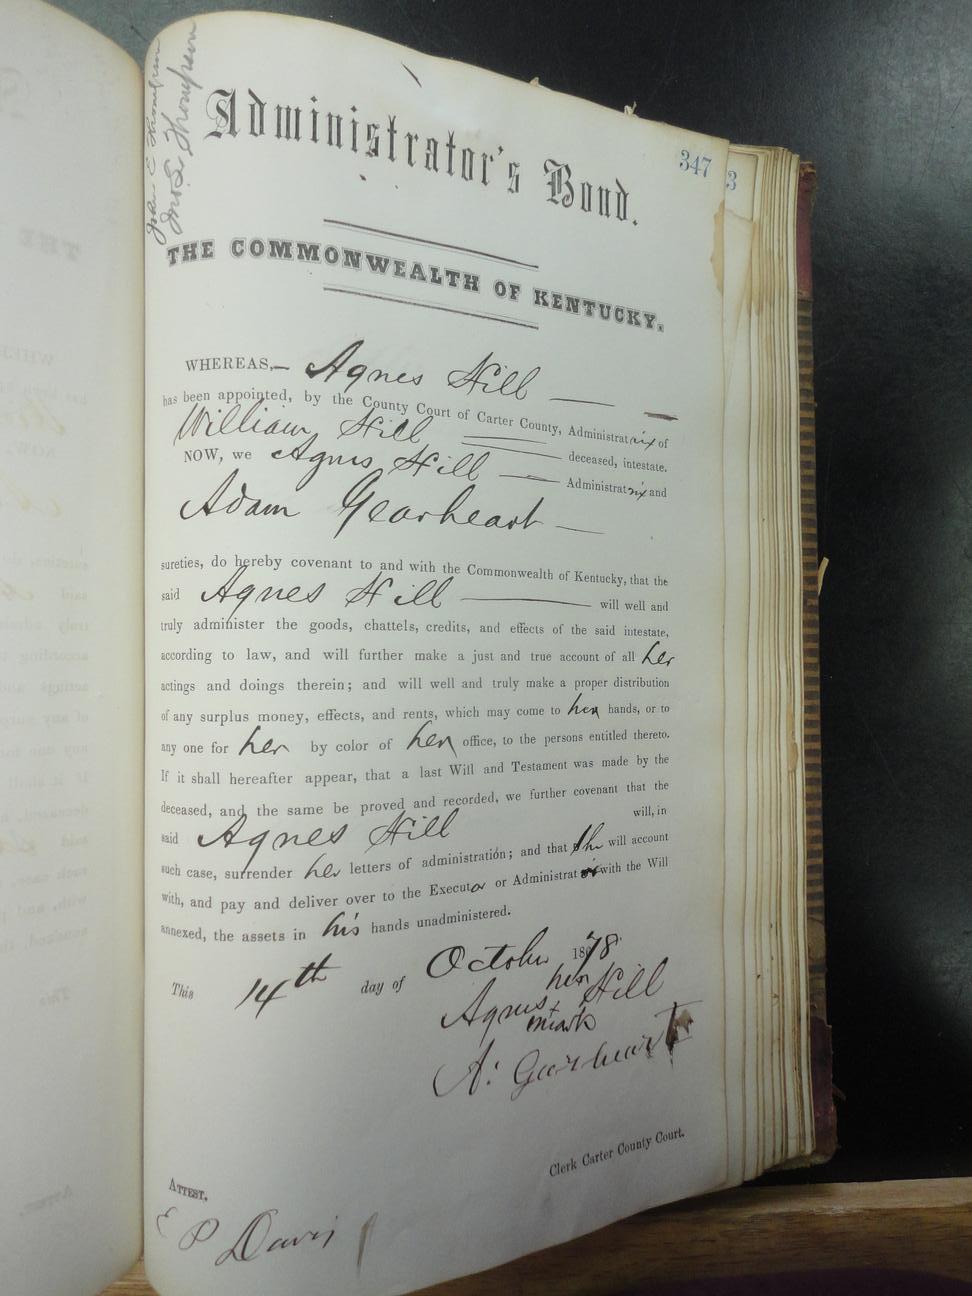 John E Thompson
Jno. E. Thompson
Administrator's Bond.
347
3
THE COMMONWEALTH OF KENTUCKY.
WHEREAS, Agnes Hill
has been appointed, by the County Court of Carter County, Administratrix of
William Hill deceased, intestate.
NOW, we Agnes Hill Administratrix and
Adam Gearheart
sureties, do hereby covenant to and with the Commonwealth of Kentucky, that the
said Agnes Hill will well and
truly administer the goods, chattels, credits, and effects of the said intestate,
according to law, and will further make a just and true account of all her
actings and doings therein; and will well and truly make a proper distribution
of any surplus money, effects, and rents, which may come to her hands, or to
any one for her by color of her office, to the persons entitled thereto.
If it shall hereafter appear, that a last Will and Testament was made by the
deceased, and the same be proved and recorded, we further covenant that the
said Agnes Hill will, in
such case, surrender her letters of administration; and that she will account
with, and pay and deliver over to the Executor or Administrator with the Will
annexed, the assets in his hands unadministered.
This 14th day of October 1878
her
Agnes + Hill
mark
A. Gearheart
Clerk Carter County Court.
ATTEST,
E P Davis